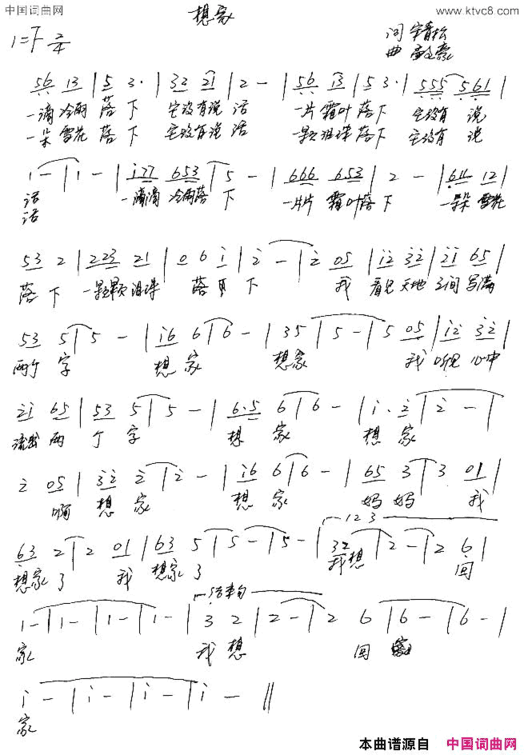 中国词曲网
www.ktvc8.com
想家
1=F 2/4
词 宋青松
曲
56 13 | 5 3· | 32 21 | 2 - | 56 13 | 5 3· | 555 561 |
一滴冷雨 落下 它没有说 话 一片霜叶 落下 它没有 说
一朵雪花 落下 它没有说 话 一颗泪珠 落下 它没有 说
1 - | 1 - | i77 653 | 5 - | 666 653 | 2 - | 611 12 |
话 一滴滴 冷雨落 下 一片片 霜叶落 下 一朵朵 雪花
话
53 2 | 223 21 | 0 6 i | 2 - | 2 05 | i2 32 | 2i 65 |
落 下 一颗颗 泪珠 落 下 我 看见 天地 之间 写满
53 5 | 5 - | i6 6 | 6 - | 35 | 5 - | 5 05 | i2 32 |
两个 字 想 家 想家 我 听见 心中
2i 65 | 53 5 | 5 - | 6·5 6 | 6 - | i· 2 | 2 - |
流出 两 个 字 想 家 想 家
2 05 | 32 2 | 2 - | i6 6 | 6 - | 65 3 | 3 01 |
啊 想 家 想 家 妈妈 我
63 2 | 2 01 | 63 5 | 5 - | 5 - | 32 | 2 - | 2 6 |
1 2 3
想家 了 我 想家 了 我想 回
1 - | 1 - | 1 - | 1 - | 3 2 | 2 - | 2 6 | 6 - | 6 - |
结束句
家 我 想 回
i - | i - | i - | i - ‖
家
本曲谱源自 中国词曲网